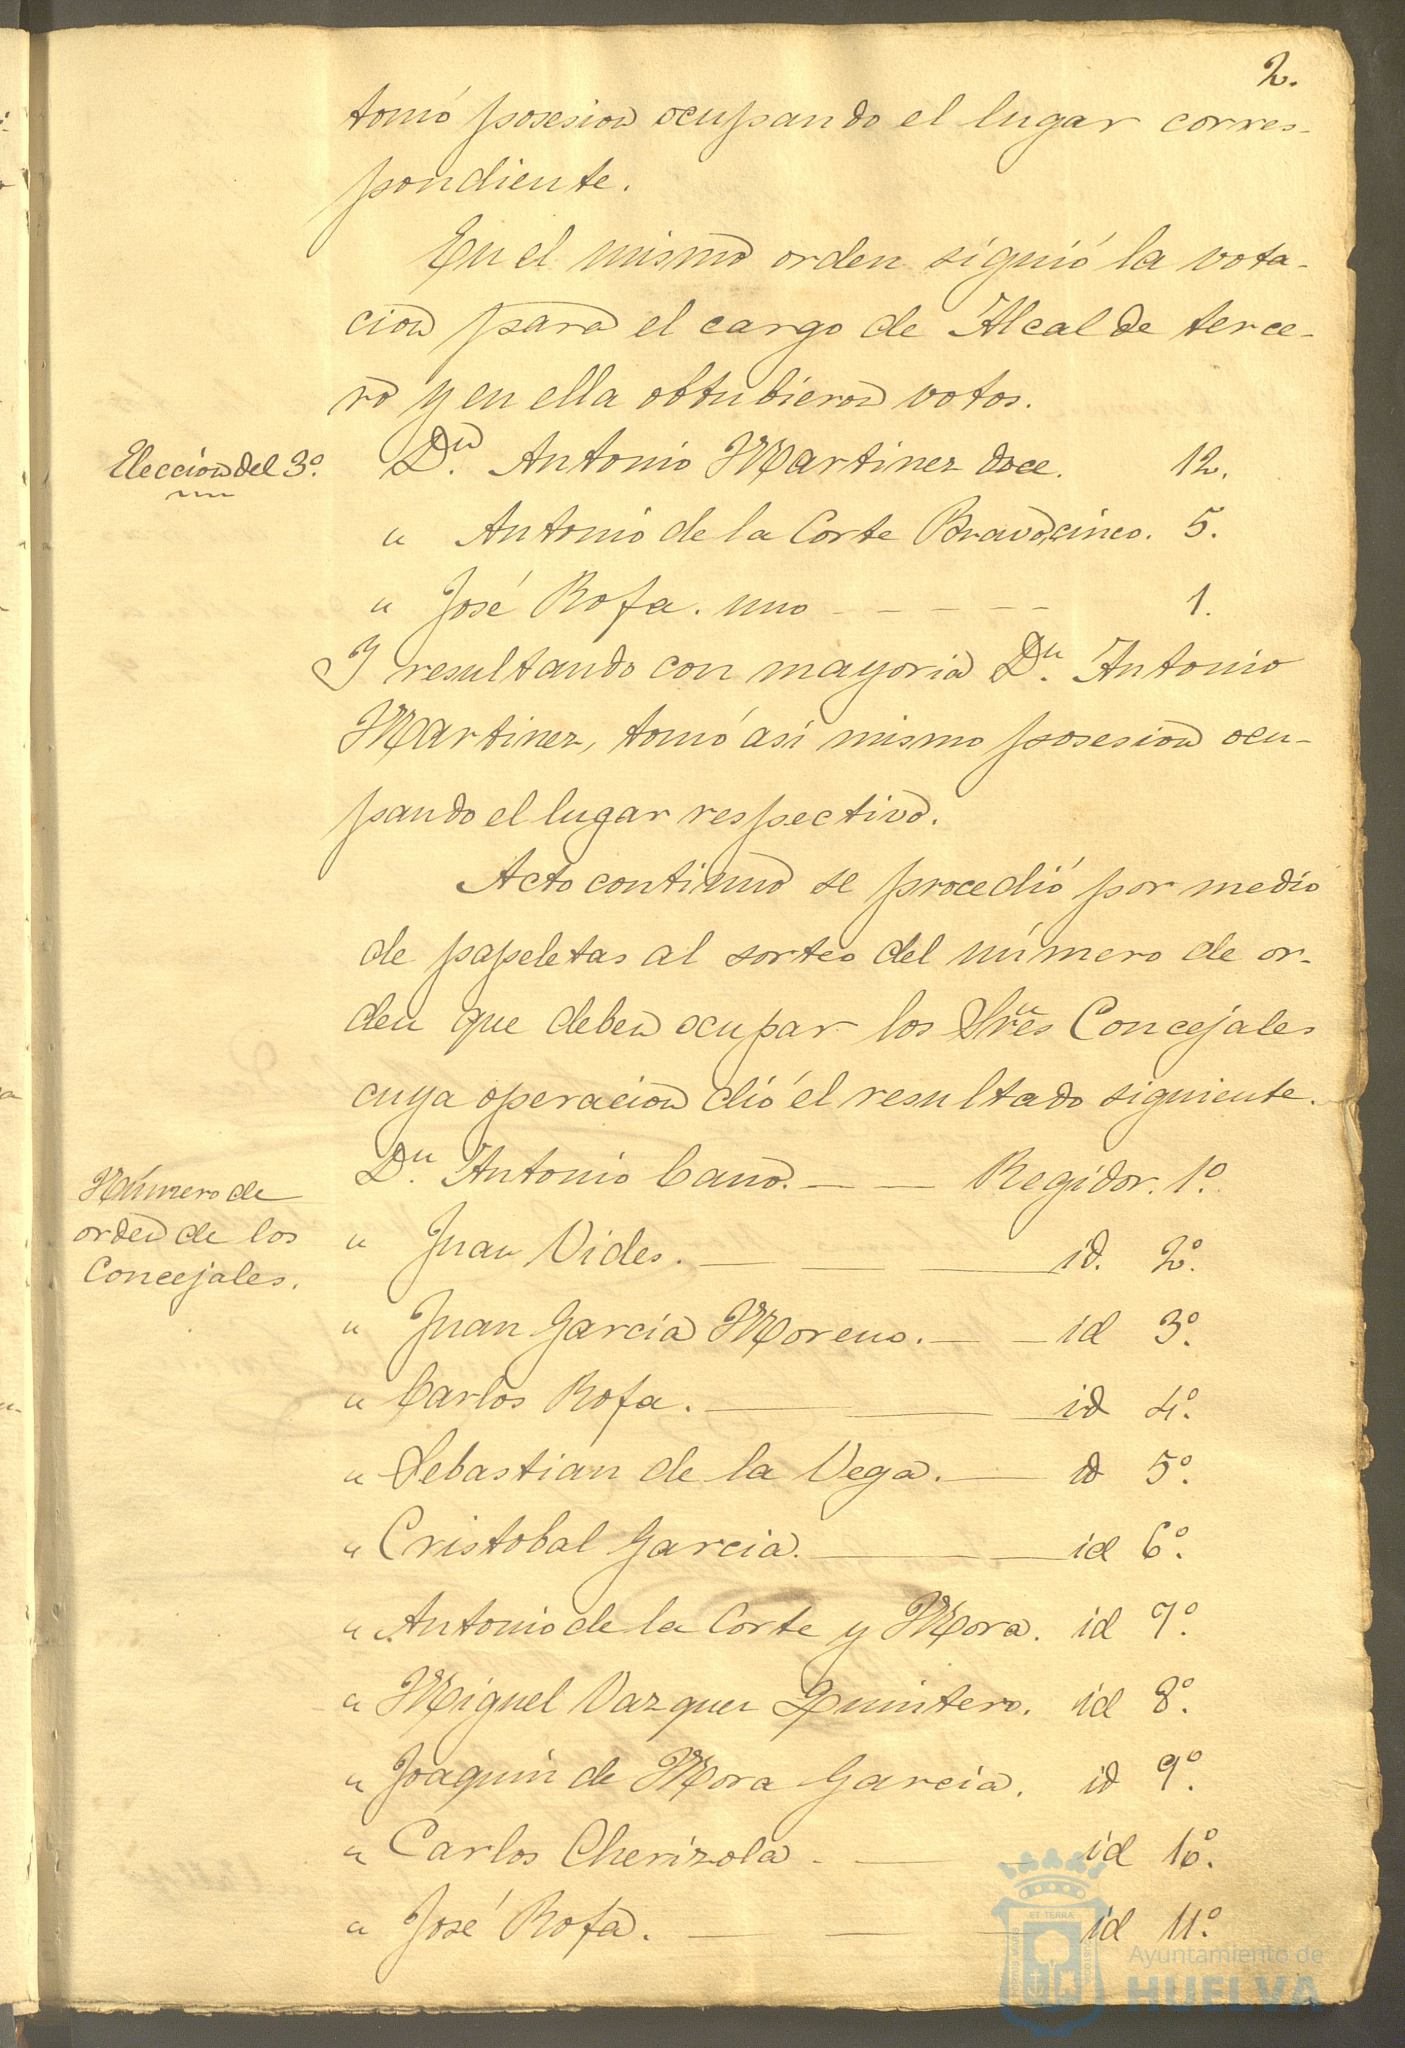 2.
tomó posesion ocupando el lugar corres-
pondiente.
En el mismo orden siguió la vota-
cion para el cargo de Alcalde terce-
ro y en ella obtubieron votos.
Eleccion del 3º.
Dn. Antonio Martinez doce. 12.
" Antonio de la Corte Bravo, cinco. 5.
" José Rofa. uno - - - - - 1.
I resultando con mayoria Dn. Antonio
Martinez, tomó asi mismo posesion ocu-
pando el lugar respectivo.
Acto continuo se procedió por medio
de papeletas al sorteo del número de or-
den que deben ocupar los Sres Concejales
cuya operacion dió el resultado siguiente.
Número de
orden de los
Concejales.
Dn. Antonio Cano. — — Regidor. 1º.
" Juan Vides. — — — id. 2º.
" Juan Garcia Moreno. — — id 3º.
" Carlos Rofa. — — — id 4º.
" Sebastian de la Vega. — id 5º.
" Cristobal Garcia. — — — id 6º.
" Antonio de la Corte y Mora. id 7º.
" Miguel Vazquez Quintero. id 8º.
" Joaquin de Mora Garcia. id 9º.
" Carlos Cherizola - — — id 10º.
" José Rofa. — — — id 11º.
ET TERRA
Ayuntamiento de
HUELVA